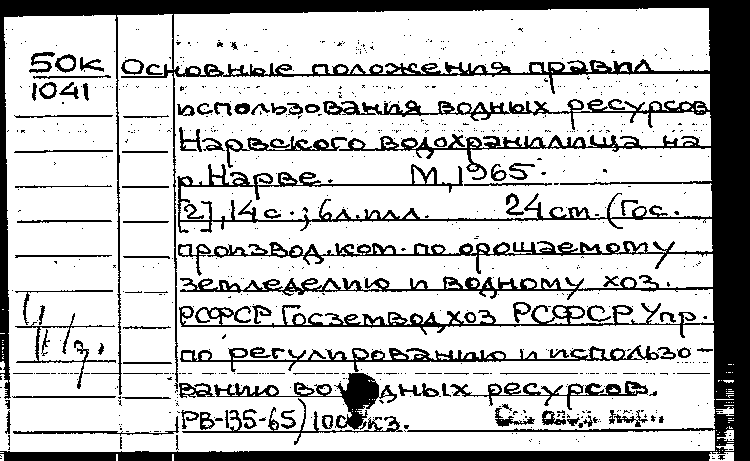 50к Основные положения правил
1041
использования водных ресурсов
Нарвского водохранилища на
р. Нарве. М., 1965.
[2], 14 с.; 6 л. илл. 24 см. (Гос.
производ. ком. по орошаемому
земледелию и водному хоз.
РСФСР. Госземводхоз РСФСР. Упр.
по регулированию и использо-
ванию во водных ресурсов.
РВ-135-65) 100 кз.